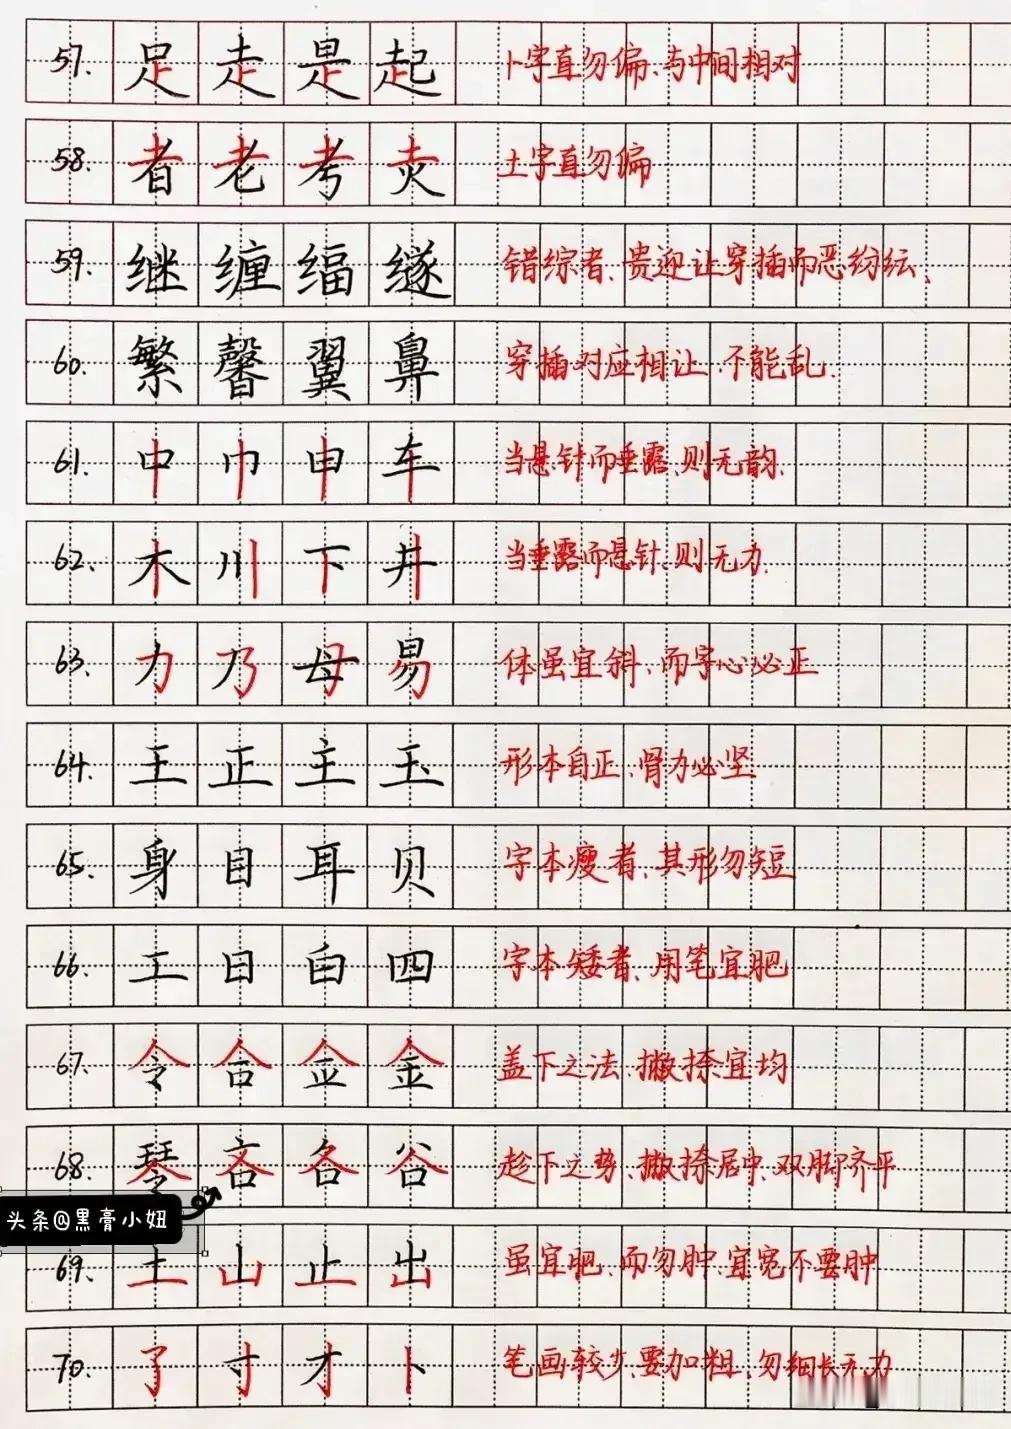 57. 足 走 是 起 卜字直勿偏、与中间相对
58. 者 老 考 灮 土字直勿偏
59. 继 缠 缁 缝 错综者、贵迎让穿插而恶纷纭、
60. 繁 馨 翼 鼻 穿插对应相让、不能乱.
61. 中 巾 申 车 当悬针而垂露、则无韵.
62. 木 川 下 井 当垂露而悬针、则无力.
63. 力 乃 母 易 体虽宜斜、而字心必正
64. 王 正 主 玉 形本自正、骨力必坚
65. 身 目 耳 贝 字本瘦者、其形勿短
66. 工 日 白 四 字本矮者、用笔宜肥
67. 令 合 佥 金 盖下之法、撇捺宜均
68. 琴 吝 各 谷 趁下之势、撇捺居中、双脚齐平
头条@黑膏小妞
69. 土 山 止 出 虽宜肥、而勿肿、宜宽不要肿
70. 了 寸 才 卜 笔画较少、要加粗、勿细长无力